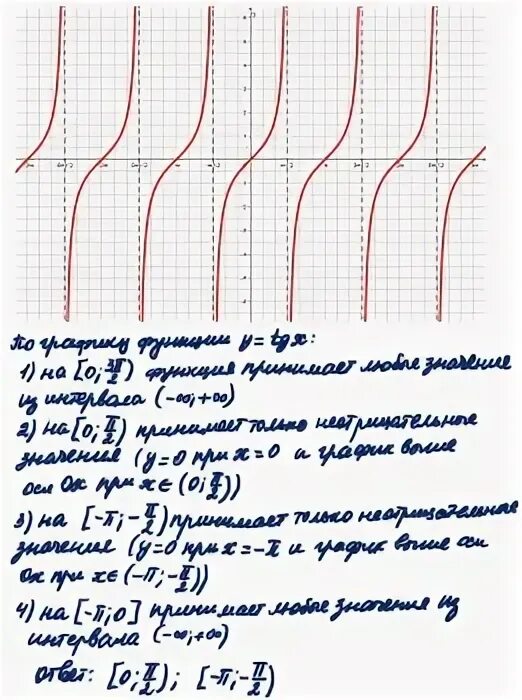 По графику функции y = tg x:
1) на [0; 3π/2) функция принимает любые значение
из интервала (-∞; +∞)
2) на [0; π/2) принимает только неотрицательные
значения (y=0 при x=0 и график выше
оси Ox при x∈(0; π/2))
3) на [-π; -π/2) принимает только неотрицательное
значение (y=0 при x=-π и график выше оси
Ox при x∈(-π; -π/2))
4) на [-π; 0] принимает любые значения из
интервала (-∞; +∞)
Ответ: [0; π/2); [-π; -π/2)